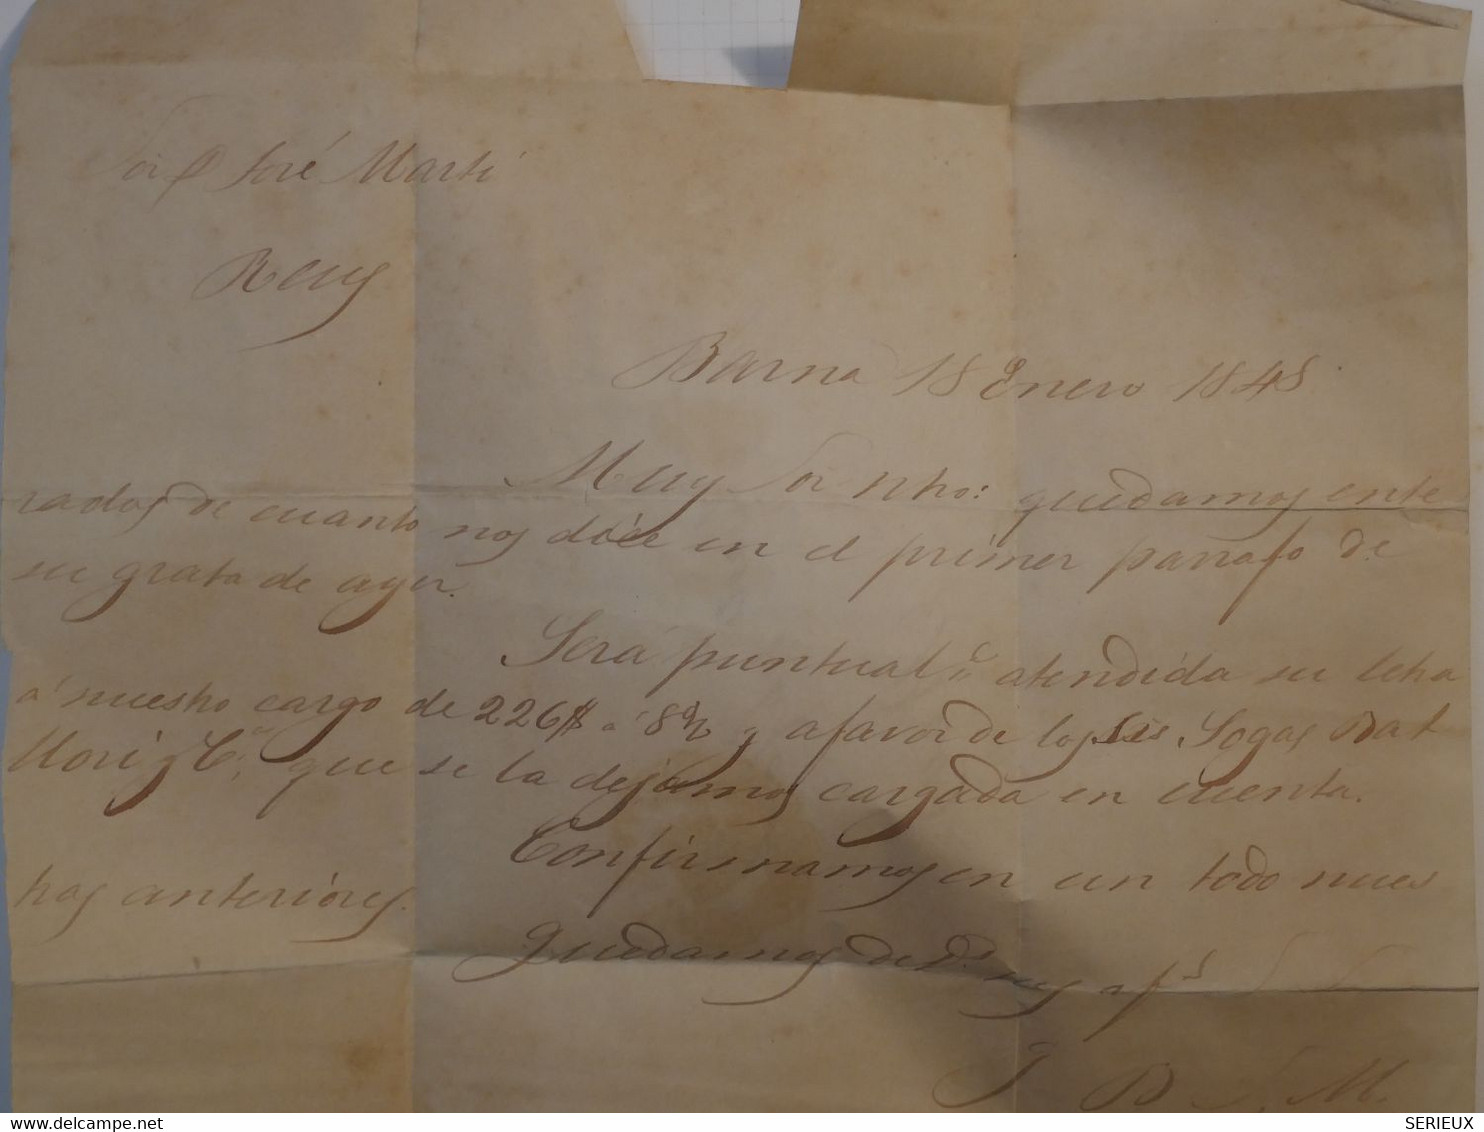 Sor D José Marti
Reus
Barna 18 Enero 1848
Muy Sor ntro: quedamos ente
rados de cuanto nos dice en el primer parrafo de
su grata de ayer.
Será puntual.te atendida su letra
á nuestro cargo de 226$ a 8 y a favor de los Sres Sogas Bat
llori y Ca, que se la dejamos cargada en cuenta.
Confirmamos en un todo nues
tras anteriores.
Quedamos de V. af.s S S
Q B S. M.
DELCAMPE.NET
SERIEUX